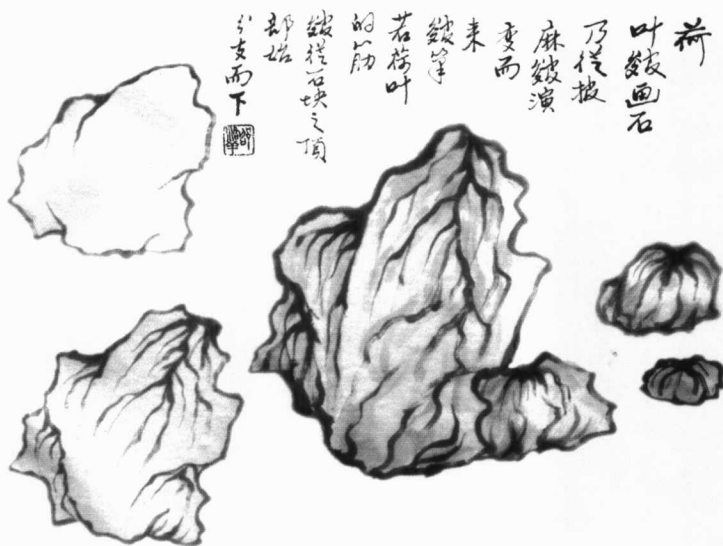 荷
叶皴画石
乃从披
麻皴演
变而
来
皴笔
若荷叶
的筋
皴从石块之顶
部始
分支而下